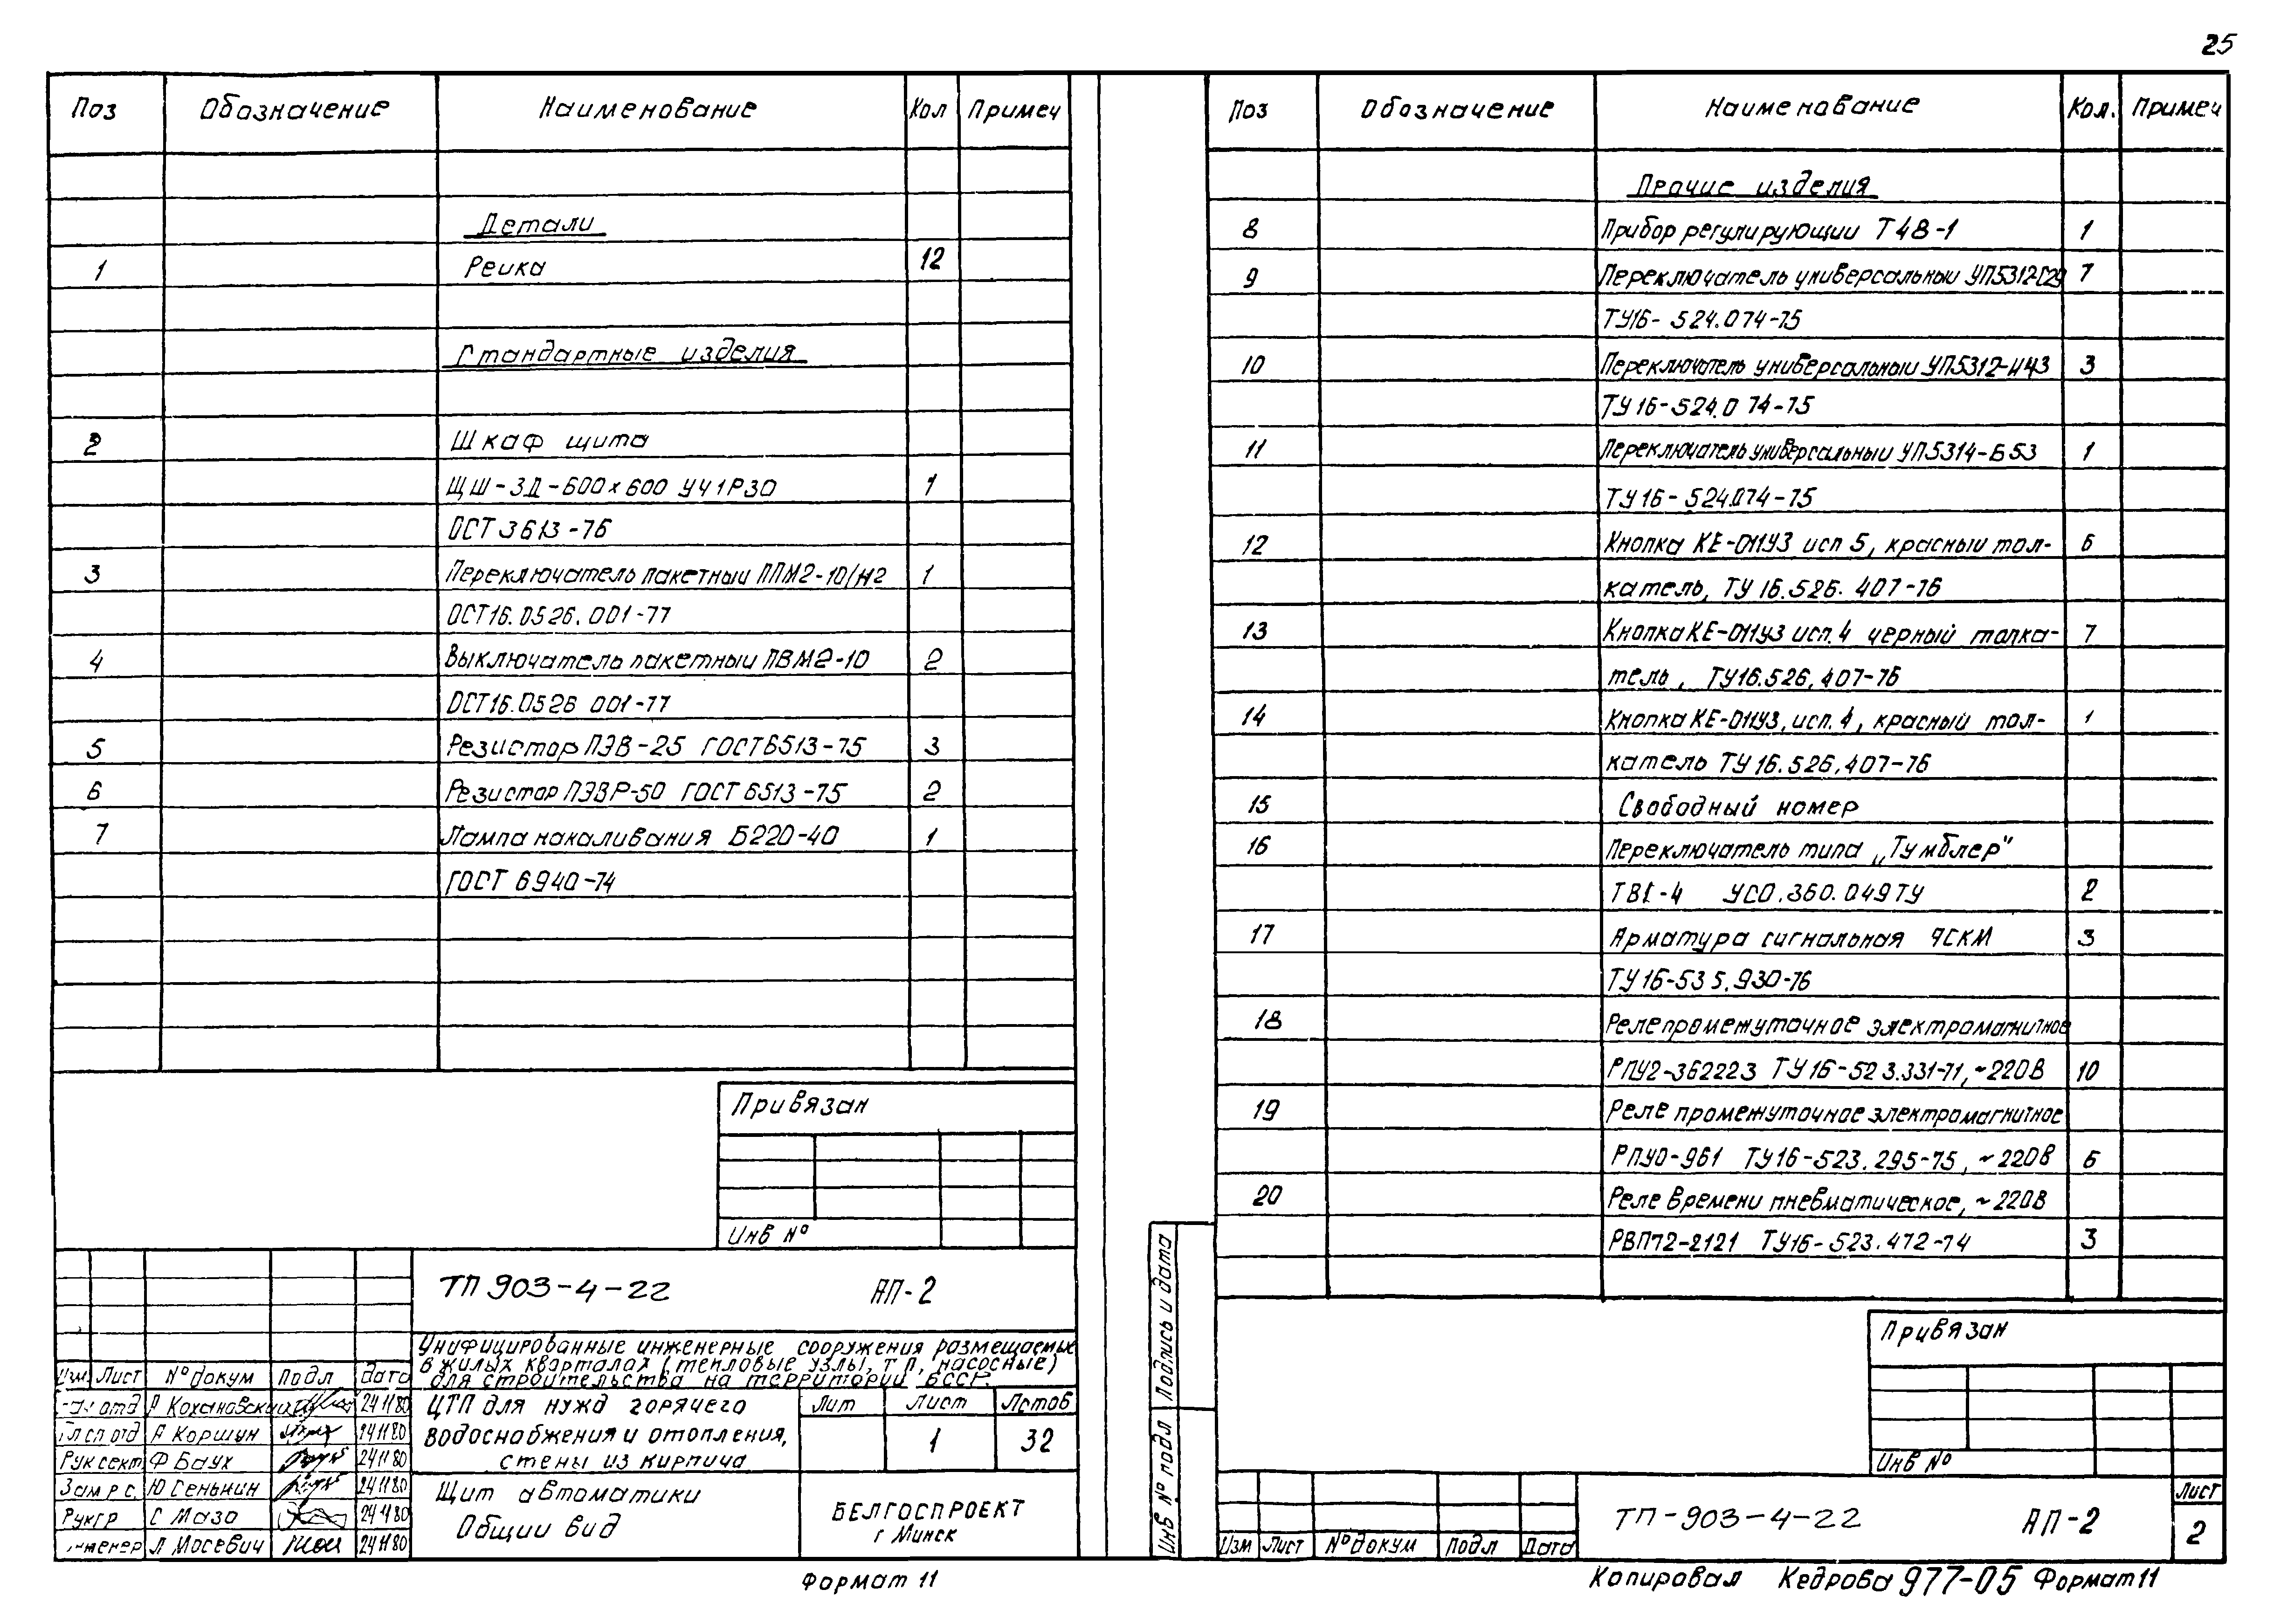 25
Поз Обозначение Наименование Кол Примеч
Детали
1 Рейка 12
Стандартные изделия
2 Шкаф щита
ЩШ-ЗД-600×600 УЧ1Р30 1
ОСТ 3613-76
3 Переключатель пакетный ППМ2-10/Н2 1
ОСТ16.0526.001-77
4 Выключатель пакетный ПВМ2-10 2
ОСТ16.0526 001-77
5 Резистор ПЭВ-25 ГОСТ6513-75 3
6 Резистор ПЭВР-50 ГОСТ 6513-75 2
7 Лампа накаливания Б220-40 1
ГОСТ 6940-74
Привязан
Инв №
ТП 903-4-22 АП-2
Унифицированные инженерные сооружения размещаемые
в жилых кварталах (тепловые узлы, т п, насосные)
для строительства на территории БССР.
Изм Лист № докум Подл Дата
отд Кохановский 24 11 80
Гл сп отд А Коршун 24 11 80
Рук сект Ф Баух 24 11 80
Зам р с. Ю Сенькин 24 11 80
Рук гр С Мазо 24 11 80
инженер Л Мосевич 24 11 80
ЦТП для нужд горячего
водоснабжения и отопления,
стены из кирпича
Лит Лист Листов
1 32
Щит автоматики
Общий вид
БЕЛГОСПРОЕКТ
г Минск
Формат 11
Поз Обозначение Наименование Кол. Примеч
Прочие изделия
8 Прибор регулирующий Т48-1 1
9 Переключатель универсальный УП5312-С29 7
ТУ16-524.074-75
10 Переключатель универсальный УП5312-Ж43 3
ТУ16-524.074-75
11 Переключатель универсальный УП5314-Б53 1
ТУ16-524.074-75
12 Кнопка КЕ-011У3 исп 5, красный тол- 6
катель, ТУ 16.526.407-76
13 Кнопка КЕ-011У3 исп.4 черный толка- 7
тель, ТУ16.526.407-76
14 Кнопка КЕ-011У3, исп.4, красный тол- 1
катель ТУ 16.526.407-76
15 Свободный номер
16 Переключатель типа „Тумблер"
ТВ1-4 УСО.360.049ТУ 2
17 Арматура сигнальная АСКМ 3
ТУ16-535.930-76
18 Реле промежуточное электромагнитное
РПУ2-362223 ТУ16-523.331-71, ~220В 10
19 Реле промежуточное электромагнитное
РПУ0-961 ТУ16-523.295-75, ~220В 6
20 Реле времени пневматическое, ~220В
РВП72-2121 ТУ16-523.472-74 3
Привязан
Инв №
Инв № подл Подпись и дата
Изм Лист № докум Подл Дата
ТП-903-4-22 АП-2
Лист
2
Копировал Кедрова 977-05 Формат 11